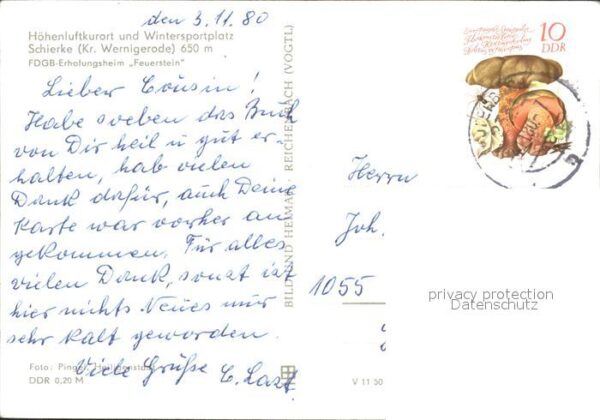 den 3.11.80
Höhenluftkurort und Wintersportplatz
Schierke (Kr. Wernigerode) 650 m
FDGB-Erholungsheim „Feuerstein"
Lieber Cousin!
Habe soeben das Buch
von Dir heil u gut er-
halten, hab vielen
Dank dafür, auch Deine
Karte war vorher an
gekommen. Für alles
vielen Dank, sonst ist
hier nichts Neues nur
sehr kalt geworden.
Viele Grüße E. Last.
Foto:
DDR 0,20 M
BILD UND HEIMAT REICHENBACH (VOGTL)
V 11 50
10
DDR
Herrn
Joh.
1055
privacy protection
Datenschutz